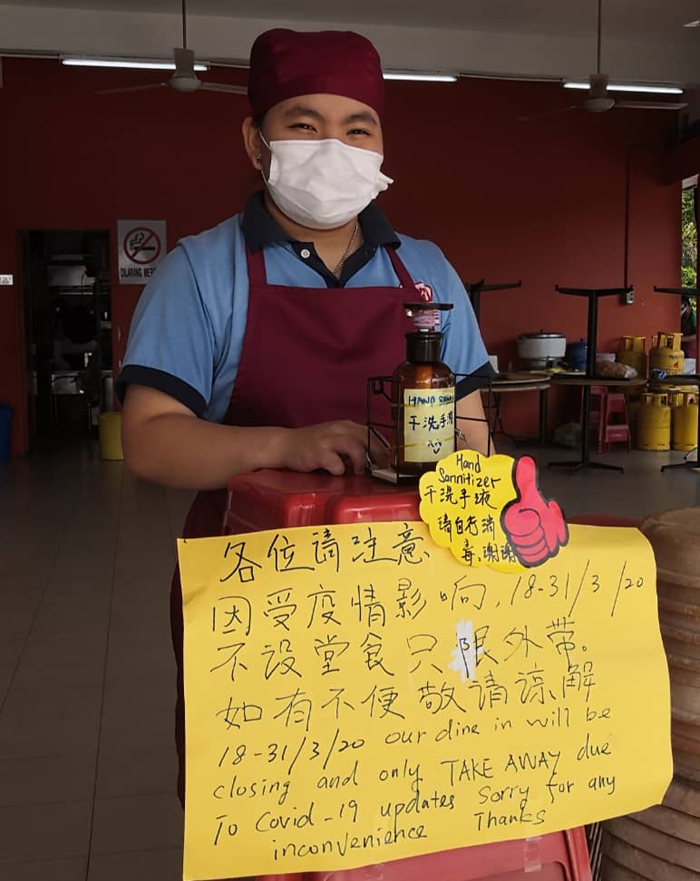 DILARANG MER
HAND SAN
干洗手液
Hand
Sannitizer
干洗手液
请自行消
毒,谢谢
各位请注意
因受疫情影响,18-31/3/20
不设堂食只限外带。
如有不便敬请谅解
18-31/3/20 our dine in will be
closing and only TAKE AWAY due
To Covid-19 updates Sorry for any
inconvenience Thanks